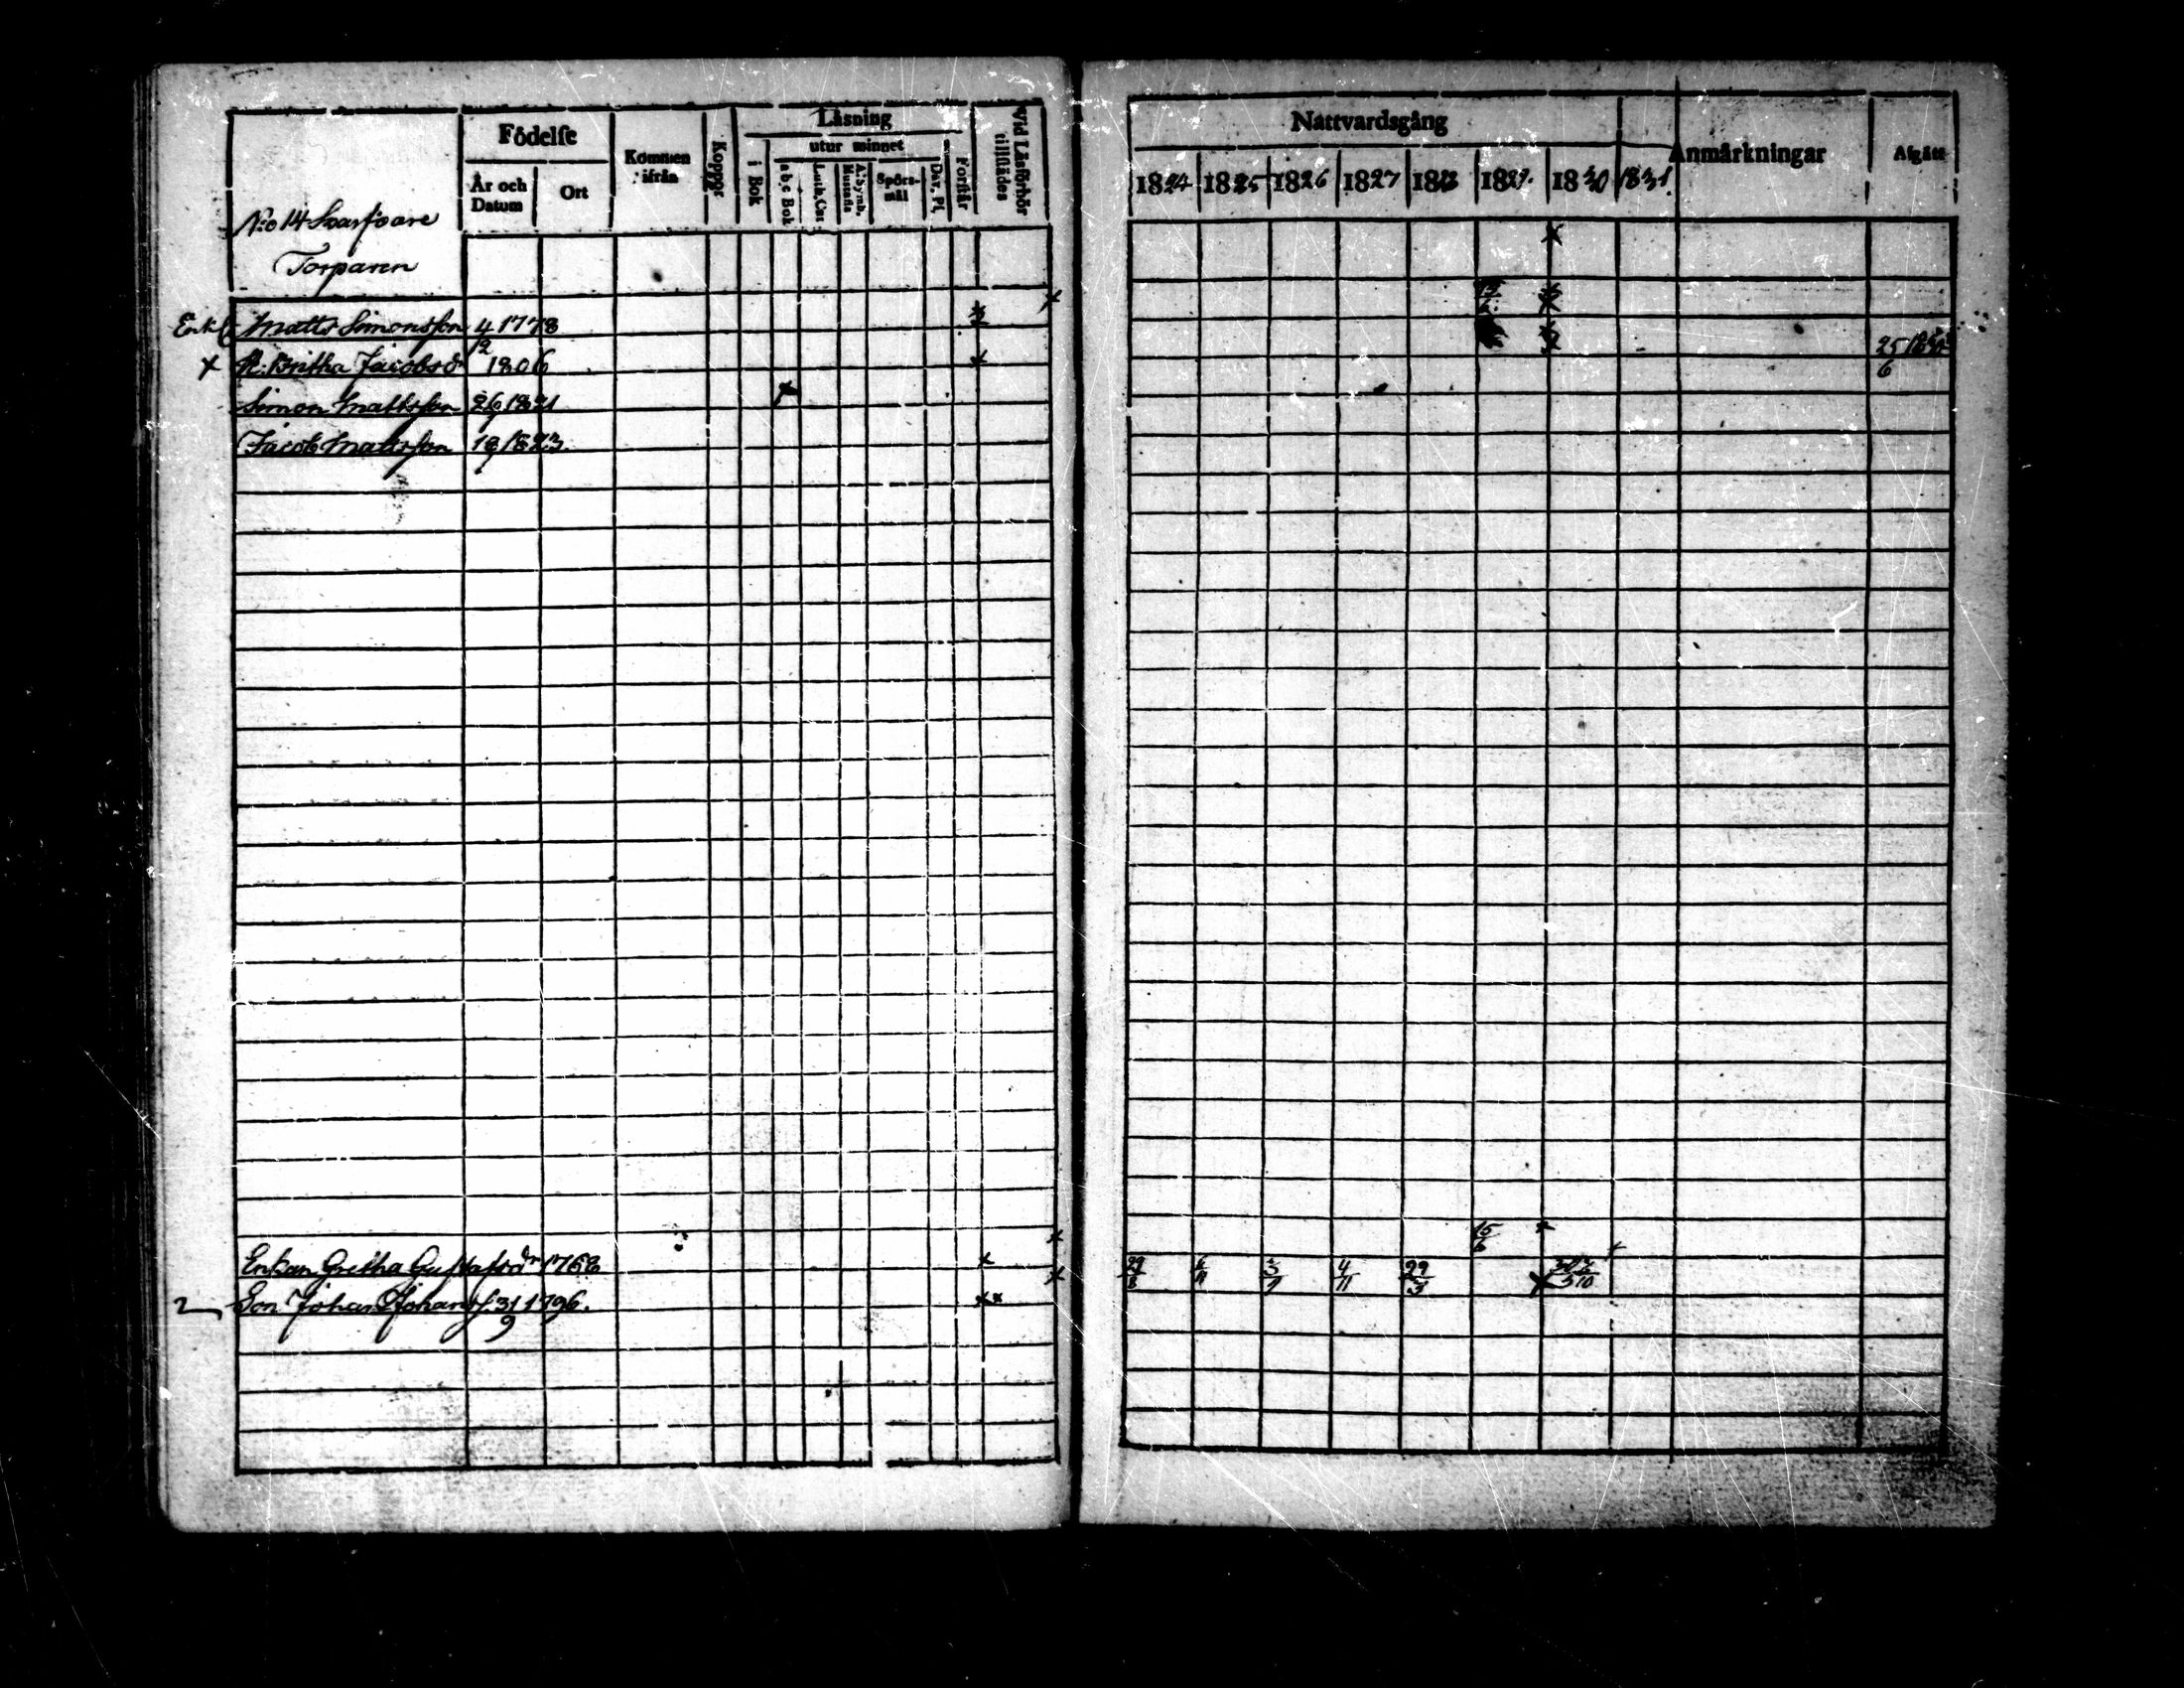 Födelse
Kommen ifrån
Koppor
Läsning
utur minnet
Vid Läsförhör tillstädes
År och Datum
Ort
i Bok
abc Bok
Luth. Cat.
Spörsmål
Dav. Ps.
Förstår
Nattvardsgång
Anmärkningar
Afgått
1824 1825 1826 1827 1828 1829 1830 1831
N:o 14
Torparen
Enkl Matts Simonsson 4/12 1778
x H: Britha Jacobsdr 1806 25/6
Simon Mattsson 26 1821
Jacob Mattsson 18 1823.
15/6
Enkan Gretha Gustafsdr 1768
29/8 6/11 3/9 4/11 29/3
2 Son Johan Johanss 31/9 1796.